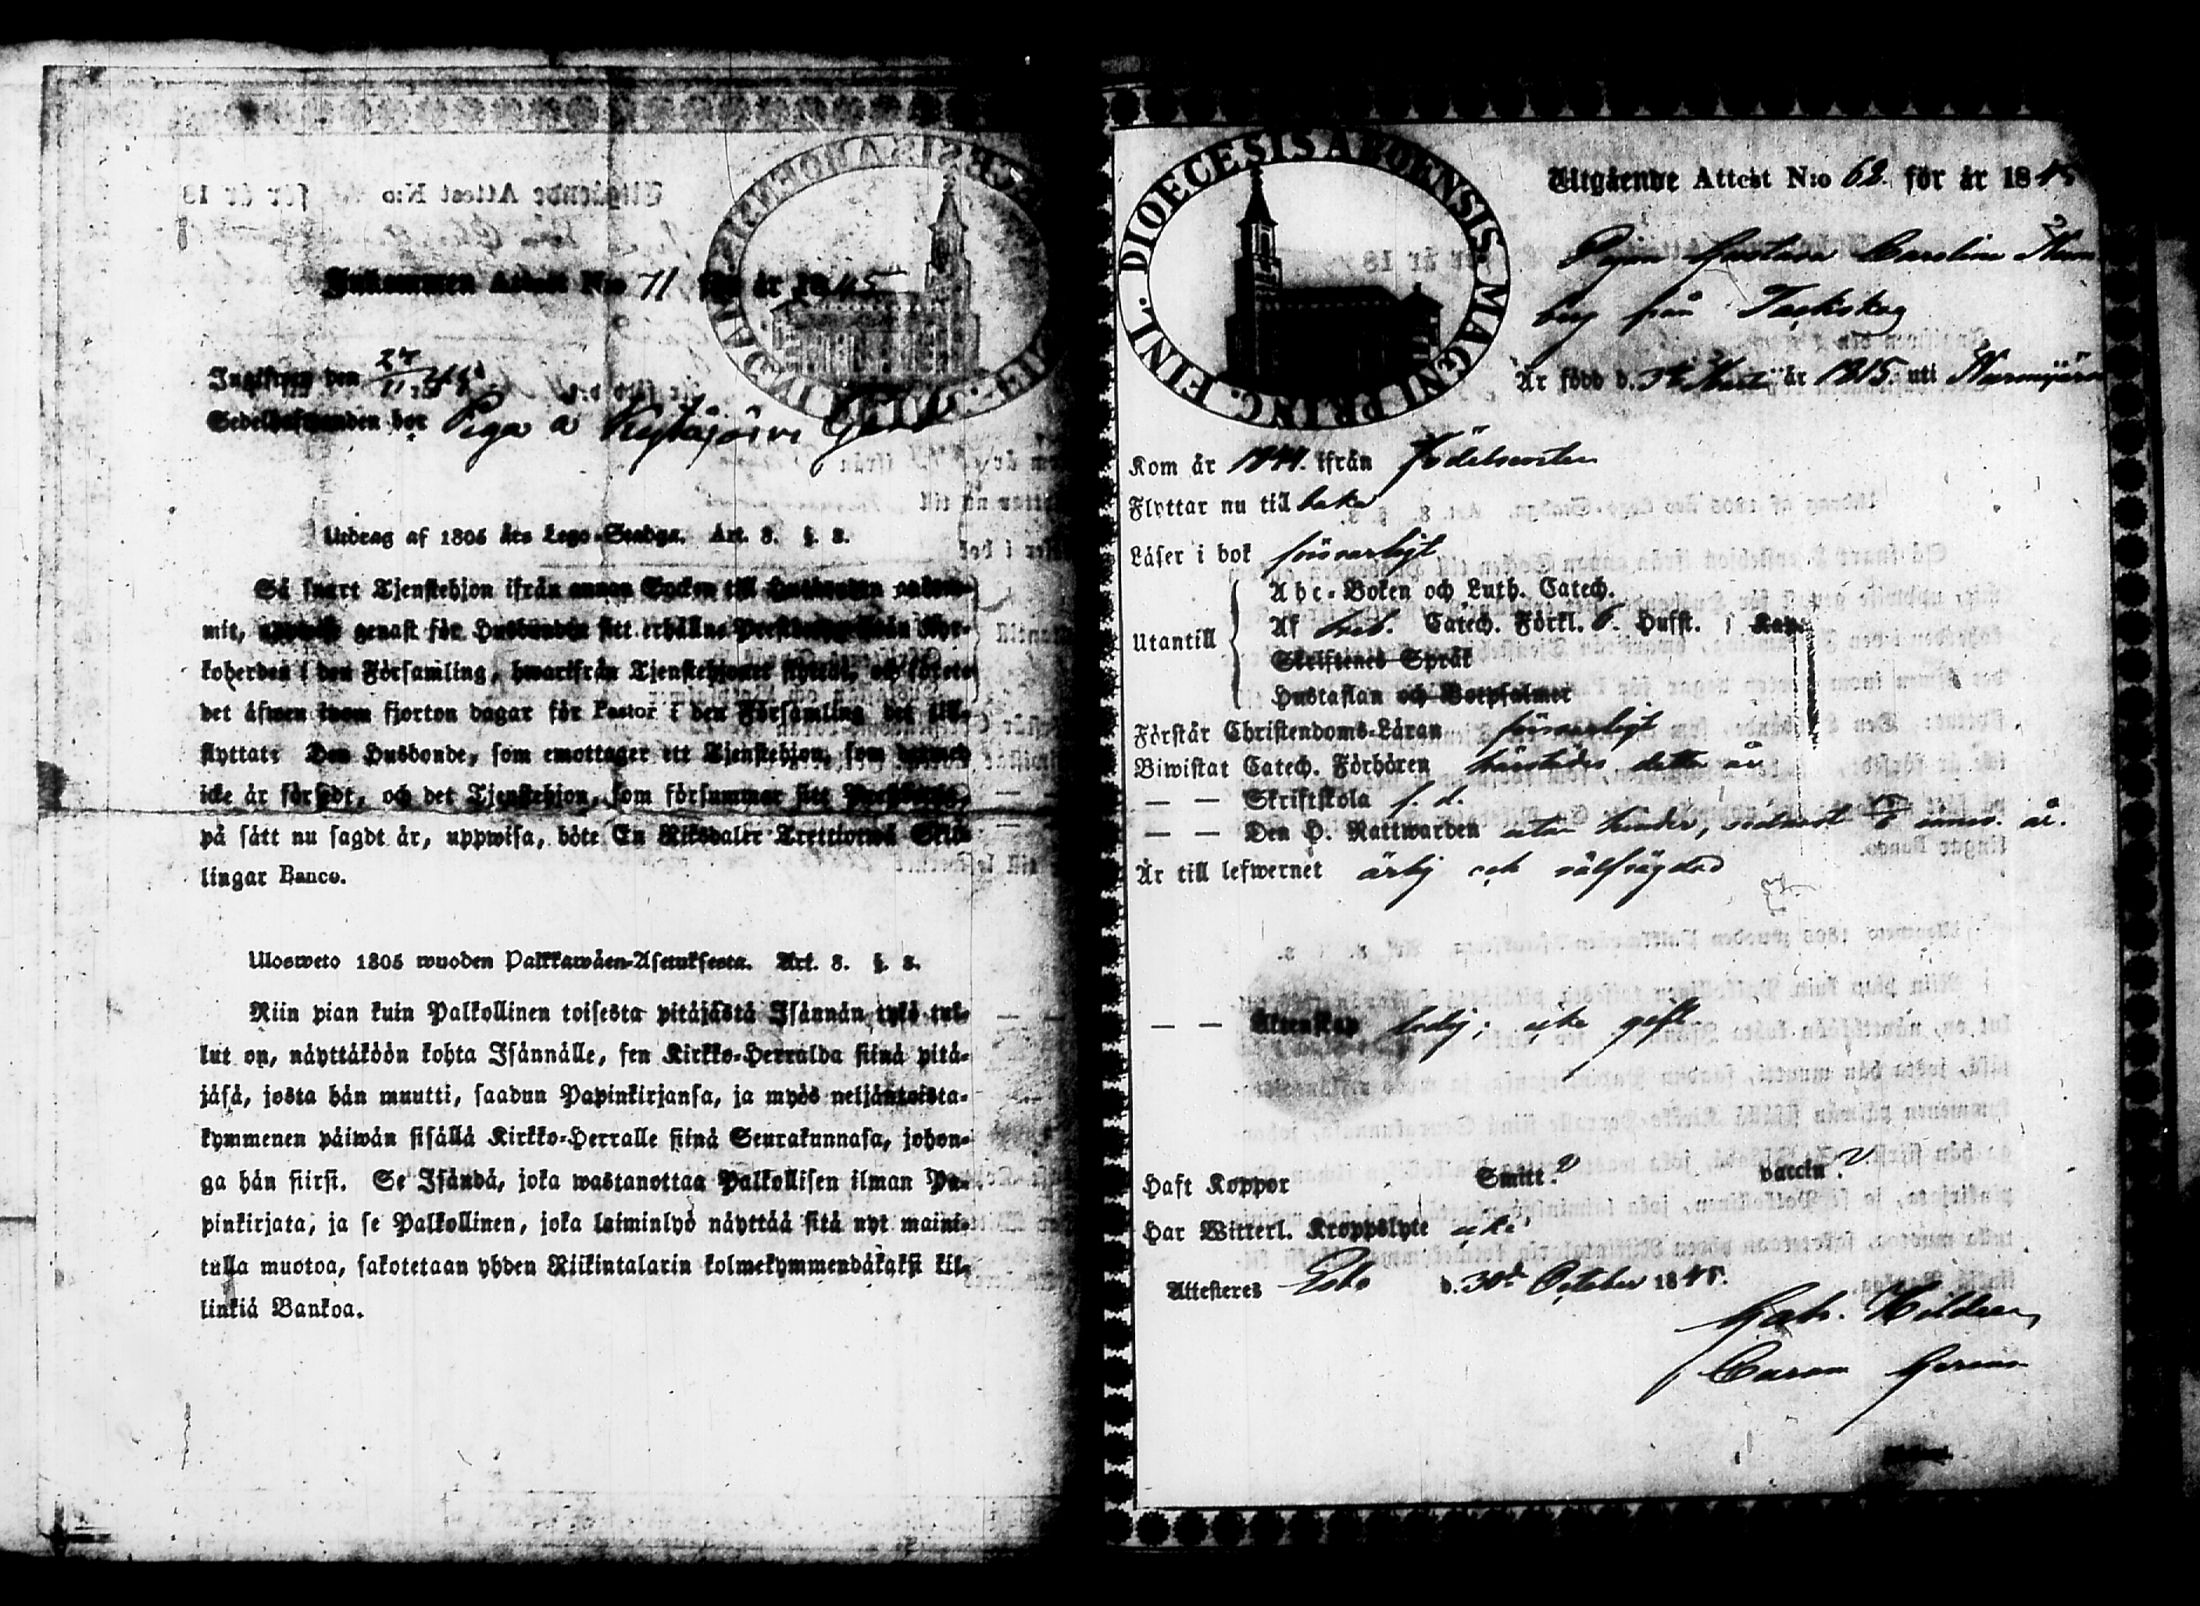 Inkommen Attest N:o 71 för år 1845
Ingifwen den 27/11 45
Sedelhafwanden bor Piga a Kytäjärvi Gård
Utdrag af 1805 års Lego-Stadga. Art. 3. §. 3.
Så snart Tjenstehjon ifrån annan Socken till Husbonden ankom-
mit, uppwise genast för Husbonden sitt erhållna Prestbetyg från Kyr-
koherden i den Församling, hwarifrån Tjenstehjonet flyttat, och förete
det äfwen inom fjorton dagar för Pastor i den Församling det till-
flyttat. Den Husbonde, som emottager ett Tjenstehjon, som dermed
icke är försedt, och det Tjenstehjon, som försummar sitt Prestbetyg,
på sätt nu sagdt är, uppwisa, böte En Riksdaler Trettiotwå Skil-
lingar Banco.
Ulosweto 1805 wuoden Palkkawäen-Asetuksesta. Art. 3. §. 3.
Niin pian kuin Palkollinen toisesta pitäjästä Isännän tykö tul-
lut on, näyttäköön kohta Isännälle, sen Kirkko-Herralda siinä pitä-
jäsä, josta hän muutti, saadun Papinkirjansa, ja myös neljäntoista-
kymmenen päiwän sisällä Kirkko-Herralle siinä Seurakunnasa, johon-
ga hän siirsi. Se Isändä, joka wastanottaa Palkollisen ilman Pa-
pinkirjata, ja se Palkollinen, joka laiminlyö näyttää sitä nyt maini-
tulla muotoa, sakotetaan yhden Riikintalarin kolmekymmendäkaksi kil-
linkiä Bankoa.
FINL. DIOECESIS ABOENSIS. MAGNI PRINC.
Utgående Attest N:o 62. för år 1845
Pigan Gustava Carolina
berg från Tackskog
Är född d. 3 är 1815. uti Nurmijärvi
Kom år 1844. ifrån Födelseorten
Flyttar nu till baka
Läser i bok försvarligt
Utantill
Abc-Boken och Luth. Catech.
Af Catech. Förkl. 6. Hufst. Kap.
Skriftenes Språk
Hustaflan och Botpsalmer
Förstår Christendoms-Läran försvarligt
Biwistat Catech. Förhören härstädes detta år
— — Skriftskola f. d.
— — Den H. Nattwarden utan hinder, sednast innev. år.
Är till lefwernet ärlig och välfrägdad
— — Äktenskap ledig; icke gift
Haft Koppor Smitt. Vaccin
Har Witterl. Kroppslyte icke
Attesteres Esbo d. 30d October 1845.
Gab. Hildeen